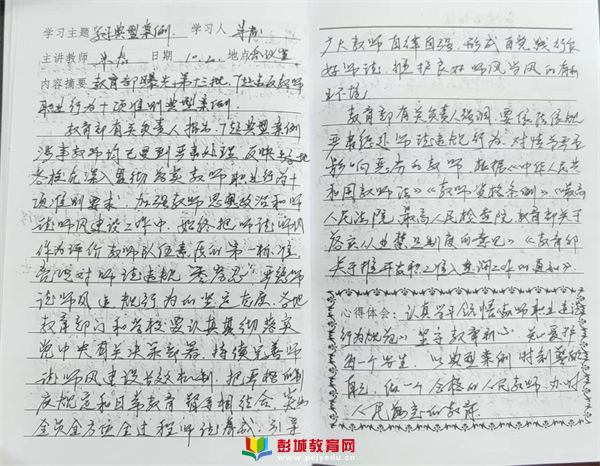 学习主题 学习典型案例. 学习人
主讲教师 日期 10.2. 地点 会议室
内容摘要 教育部曝光第十三批7起违反教师
职业行为十项准则典型案例.
教育部有关负责人指出, 7起典型案例
涉事教师均已受到严肃处理, 反映各地
各校在深入贯彻落实教师职业行为十
项准则要求, 加强教师思想政治和师
德师风建设工作中, 始终把师德师风
作为评价教师队伍素质的第一标准,
师德违规 零容忍
德师风违规行为的坚定态度. 各地
教育部门和学校要认真贯彻落实
党中央有关决策部署, 持续完善师
德师风建设长效机制, 把严格的制
度规定和日常教育督导相结合,
全员全方位全过程师德养成, 引导
广大教师自律自强, 形成自觉践行良
好师德, 维护良好师风学风的
教育部有关负责人强调, 要依法依规
严肃惩处师德违规行为. 对情节严重
影响恶劣的教师, 依据《中华人民共
和国教师法》《教师资格条例》《最高
人民法院 最高人民检察院 教育部关于
落实从业禁止制度的意见》《教育部
关于推开教职工准入查询工作的通知》.
心得体会: 认真学习 教师职业道德
行为规范》 坚守教育初心, 关心爱护
每一个学生. 以典型案例时刻警醒
自己, 做一个合格的人民教师, 办好
人民满意的教育.
彭城教育网
www.pcjyedu.cn